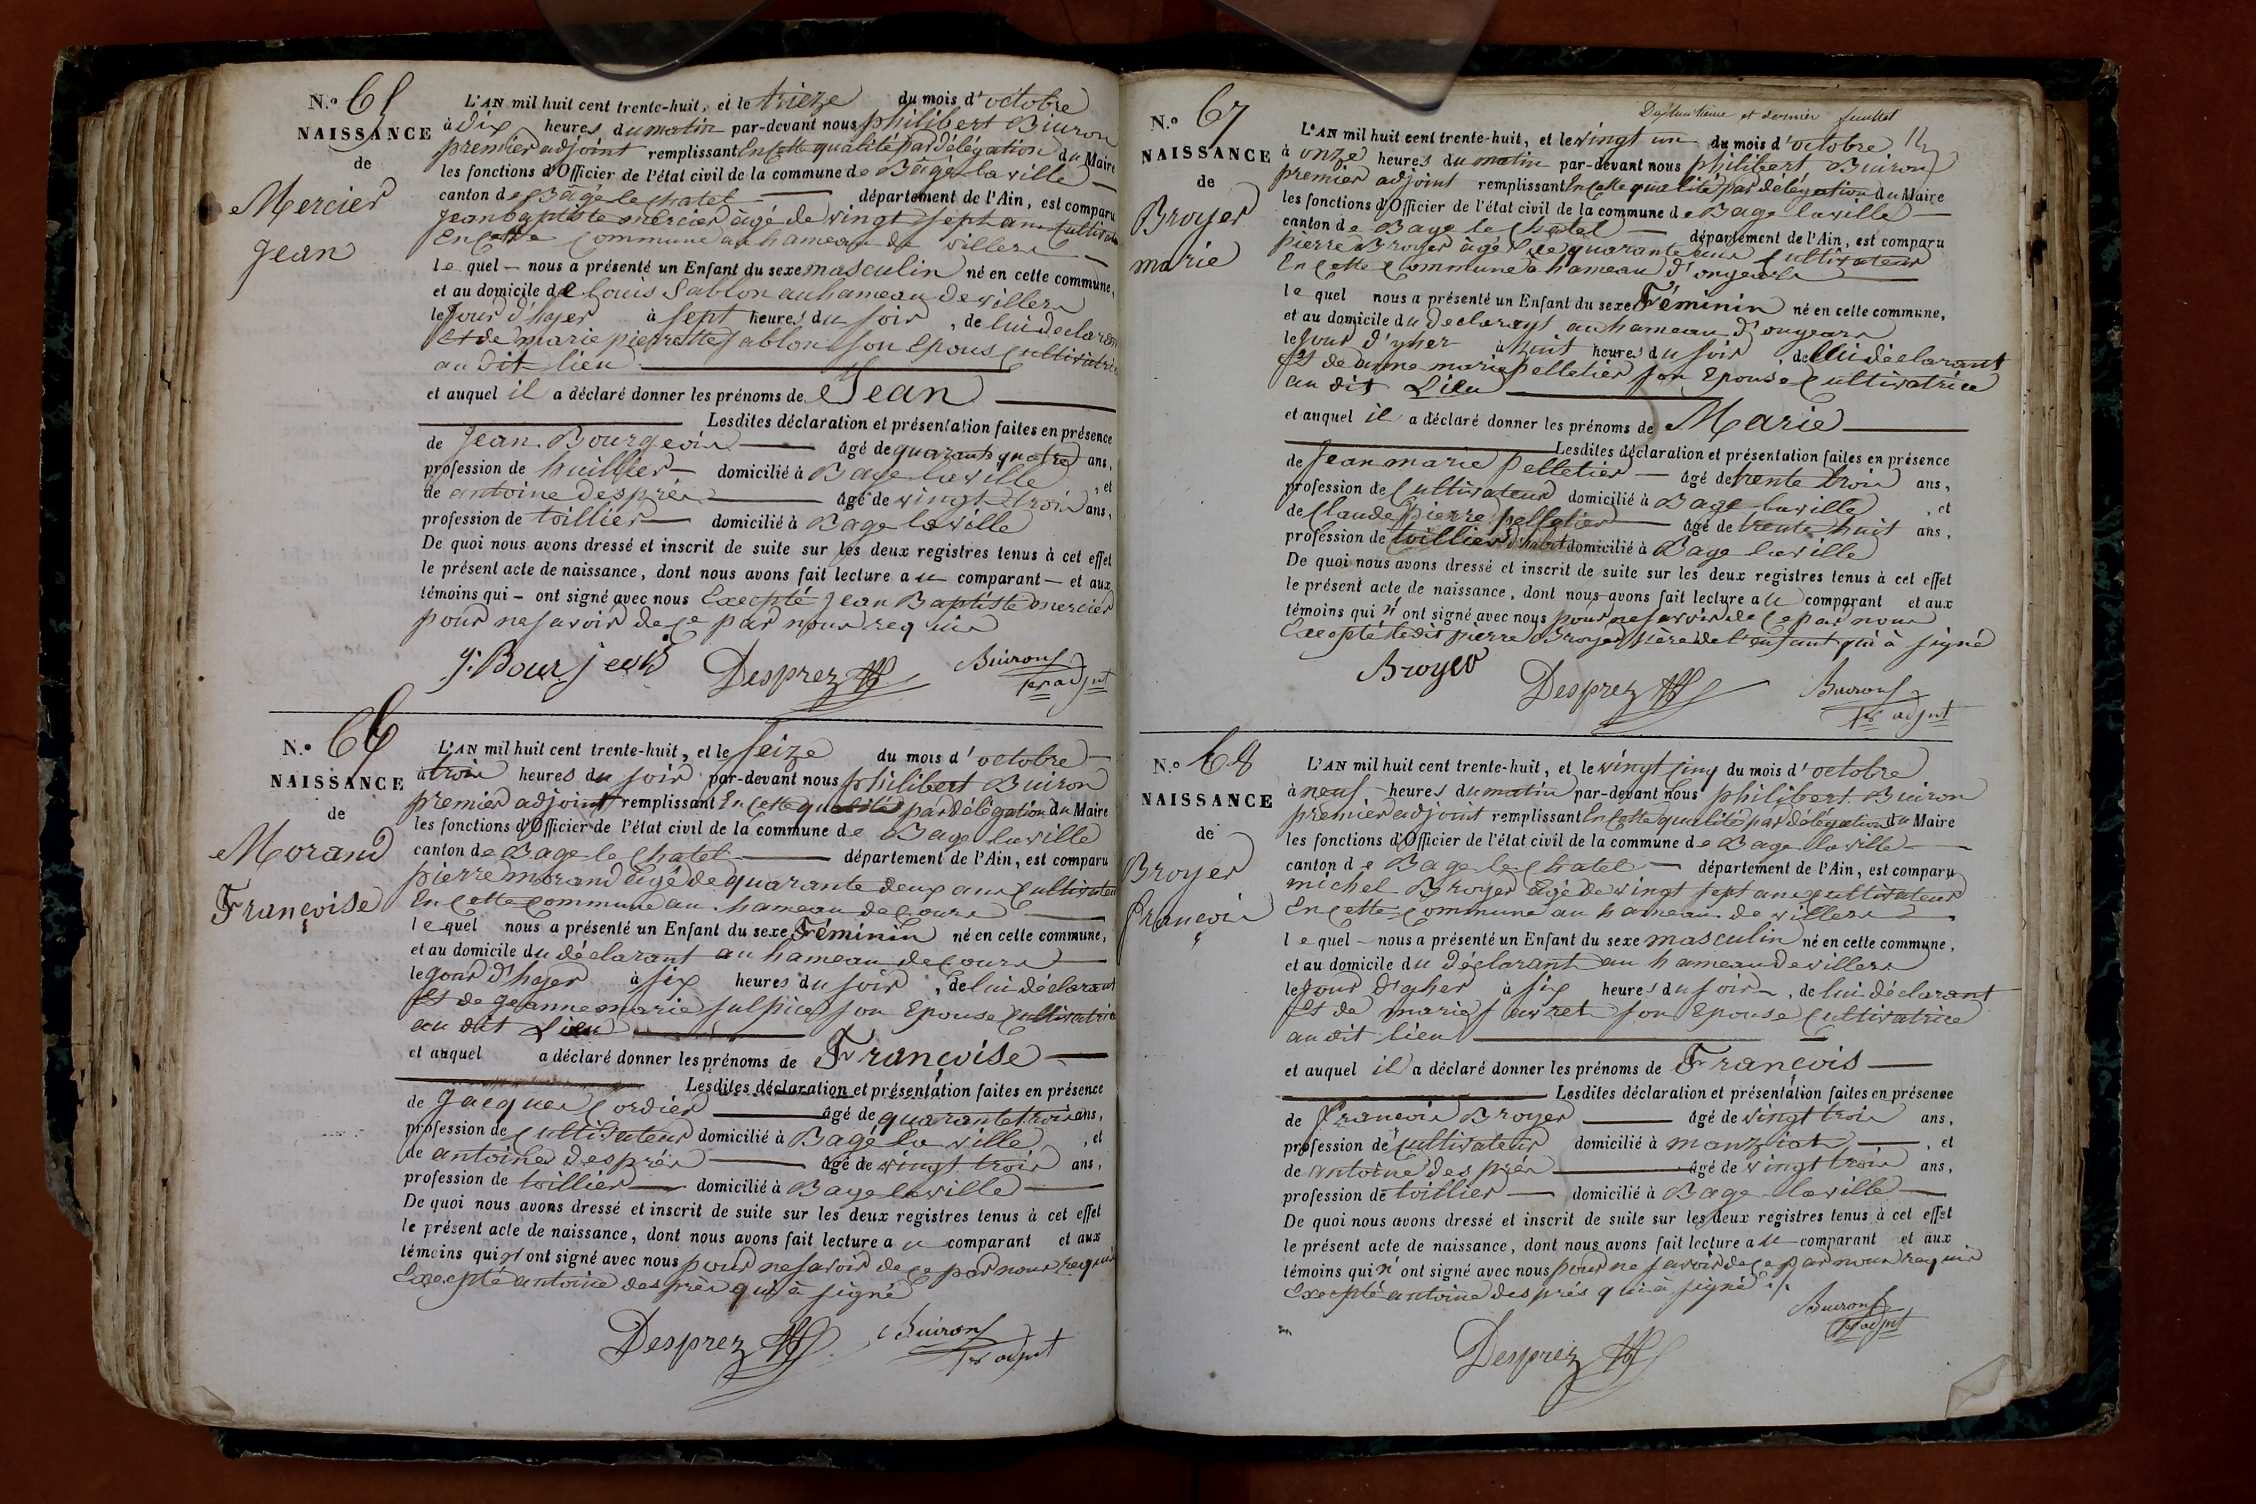 N.º 65
NAISSANCE
de
Mercier
Jean
L'AN mil huit cent trente-huit, et le treize du mois d'octobre
à dix heures du matin par-devant nous philibert Buiron
premier adjoint remplissant En Cette qualité par délégation du Maire
les fonctions d'Officier de l'état civil de la commune de Bagé la ville
canton de Bagé le chatel département de l'Ain, est comparu
Jean baptiste mercier agé de vingt sept ans Cultivateur
En Cette Commune au hameau de villers
le quel nous a présenté un Enfant du sexe masculin né en cette commune,
et au domicile de louis Sablon au hameau de villers
le Jour d'hyer à sept heures du soir, de lui declarant
Et de marie pierrette Sablon son Epouse Cultivatrice
au Dit lieu
et auquel il a déclaré donner les prénoms de Jean
Lesdites déclaration et présentation faites en présence
de Jean Bourgeois âgé de quarante quatre ans,
profession de huillier domicilié à Bage la ville, et
de antoine després âgé de vingt trois ans,
profession de toillier domicilié à Bage la ville
De quoi nous avons dressé et inscrit de suite sur les deux registres tenus à cet effet
le présent acte de naissance, dont nous avons fait lecture au comparant et aux
témoins qui ont signé avec nous Excepté Jean Baptiste mercier
pour ne savoir de ce par nous requis
Desprez Buiron
1er adjnt
N.º 66
NAISSANCE
de
Morand
Françoise
L'AN mil huit cent trente-huit, et le seize du mois d'octobre
à trois heures du soir par-devant nous philibert Buiron
premier adjoint remplissant En Cette qualité par délégation du Maire
les fonctions d'Officier de l'état civil de la commune de Bage la ville
canton de Bage le Chatel département de l'Ain, est comparu
pierre morand âgé de quarante deux ans Cultivateur
En Cette Commune au hameau de Cours
lequel nous a présenté un Enfant du sexe Féminin né en cette commune,
et au domicile du déclarant au hameau de Cours
le Jour d'hyer à six heures du soir, de lui déclarant
Et de Jeanne marie sulpice son Epouse Cultivatrice
au dit Lieu
et auquel a déclaré donner les prénoms de Françoise
Lesdites déclaration et présentation faites en présence
de Jacques Cordier âgé de quarante trois ans,
profession de Cultivateur domicilié à Bagé la ville, et
de antoine després âgé de vingt trois ans,
profession de toillier domicilié à Bage la ville
De quoi nous avons dressé et inscrit de suite sur les deux registres tenus à cet effet
le présent acte de naissance, dont nous avons fait lecture au comparant et aux
témoins qui n'ont signé avec nous pour ne savoir de ce par nous requis
Excepté antoine després qui à signé
Desprez Buiron
1er adjnt
feuillet
N.º 67
NAISSANCE
de
Broyer
marie
L'AN mil huit cent trente-huit, et le vingt un du mois d'octobre
à onze heures du matin par-devant nous philibert Buiron
premier adjoint remplissant En Cette qualité par délégation du Maire
les fonctions d'Officier de l'état civil de la commune de Bage la ville
canton de Bage le Chatel département de l'Ain, est comparu
pierre Broyer âgé de quarante ans Cultivateur
En Cette Commune a hameau d'ongears
le quel nous a présenté un Enfant du sexe Féminin né en cette commune,
et au domicile du declarant au hameau d'ongears
le Jour d'yher à huit heures du soir, de lui déclarant
Et de anne marie pelletier son Epouse Cultivatrice
au dit Lieu
et auquel il a déclaré donner les prénoms de Marie
Lesdites déclaration et présentation faites en présence
de Jean marie pelletier âgé de trente trois ans,
profession de Cultivateur domicilié à Bage la ville, et
de Claude pierre pelletier âgé de trente huit ans,
profession de toillier domicilié à Bage la ville
De quoi nous avons dressé et inscrit de suite sur les deux registres tenus à cet effet
le présent acte de naissance, dont nous avons fait lecture au comparant et aux
témoins qui n'ont signé avec nous pour ne savoir de ce par nous
Excepté ledit pierre Broyer père de l'enfant qui à signé
Broyer Desprez Buiron
1er adjnt
N.º 68
NAISSANCE
de
Broyer
françois
L'AN mil huit cent trente-huit, et le vingt cinq du mois d'octobre
à neuf heures du matin par-devant nous philibert Buiron
premier adjoint remplissant En Cette qualité par délégation du Maire
les fonctions d'Officier de l'état civil de la commune de Bage la ville
canton de Bage le Chatel département de l'Ain, est comparu
michel Broyer âgé de vingt sept ans Cultivateur
En Cette Commune au hameau de villers
le quel nous a présenté un Enfant du sexe masculin né en cette commune,
et au domicile du déclarant au hameau de villers
le Jour d'yher à six heures du soir, de lui déclarant
Et de marie feuvret son Epouse Cultivatrice
au dit lieu
et auquel il a déclaré donner les prénoms de François
Lesdites déclaration et présentation faites en présence
de François Broyer âgé de vingt trois ans,
profession de Cultivateur domicilié à manziat, et
de antoine després âgé de vingt trois ans,
profession de toillier domicilié à Bage la ville
De quoi nous avons dressé et inscrit de suite sur les deux registres tenus à cet effet
le présent acte de naissance, dont nous avons fait lecture au comparant et aux
témoins qui n'ont signé avec nous pour ne savoir de ce par nous requis
Excepté antoine després qui à signé
Buiron
1er adjnt
Desprez